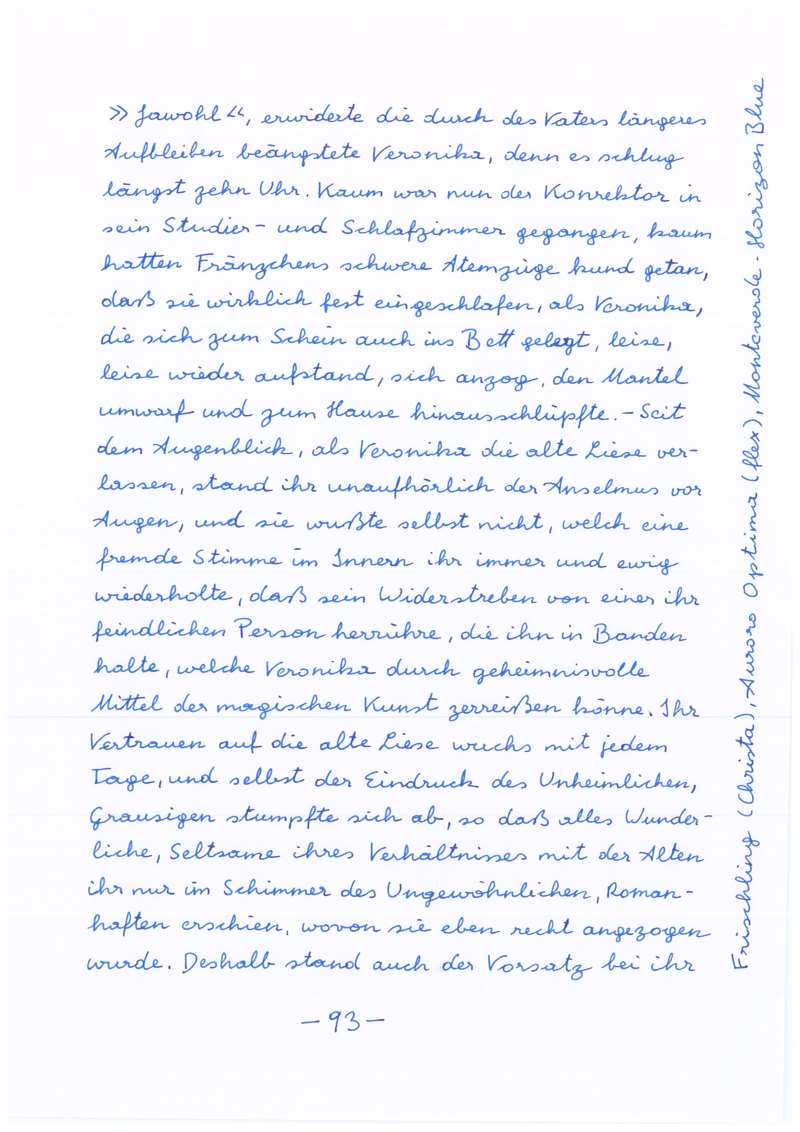 »Jawohl«, erwiderte die durch des Vaters längeres
Aufbleiben beängstete Veronika, denn es schlug
längst zehn Uhr. Kaum war nun der Konrektor in
sein Studier- und Schlafzimmer gegangen, kaum
hatten Fränzchens schwere Atemzüge kund getan,
daß sie wirklich fest eingeschlafen, als Veronika,
die sich zum Schein auch ins Bett gelegt, leise,
leise wieder aufstand, sich anzog, den Mantel
umwarf und zum Hause hinausschlüpfte. – Seit
dem Augenblick, als Veronika die alte Liese ver-
lassen, stand ihr unaufhörlich der Anselmus vor
Augen, und sie wußte selbst nicht, welch eine
fremde Stimme im Innern ihr immer und ewig
wiederholte, daß sein Widerstreben von einer ihr
feindlichen Person herrühre, die ihn in Banden
halte, welche Veronika durch geheimnisvolle
Mittel der magischen Kunst zerreißen könne. Ihr
Vertrauen auf die alte Liese wuchs mit jedem
Tage, und selbst der Eindruck des Unheimlichen,
Grausigen stumpfte sich ab, so daß alles Wunder-
liche, Seltsame ihres Verhältnisses mit der Alten
ihr nur im Schimmer des Ungewöhnlichen, Roman-
haften erschien, wovon sie eben recht angezogen
wurde. Deshalb stand auch der Vorsatz bei ihr
– 93 –
Frischling (Christa), Aurora Optima (flex), Monteverde - Horizon Blue